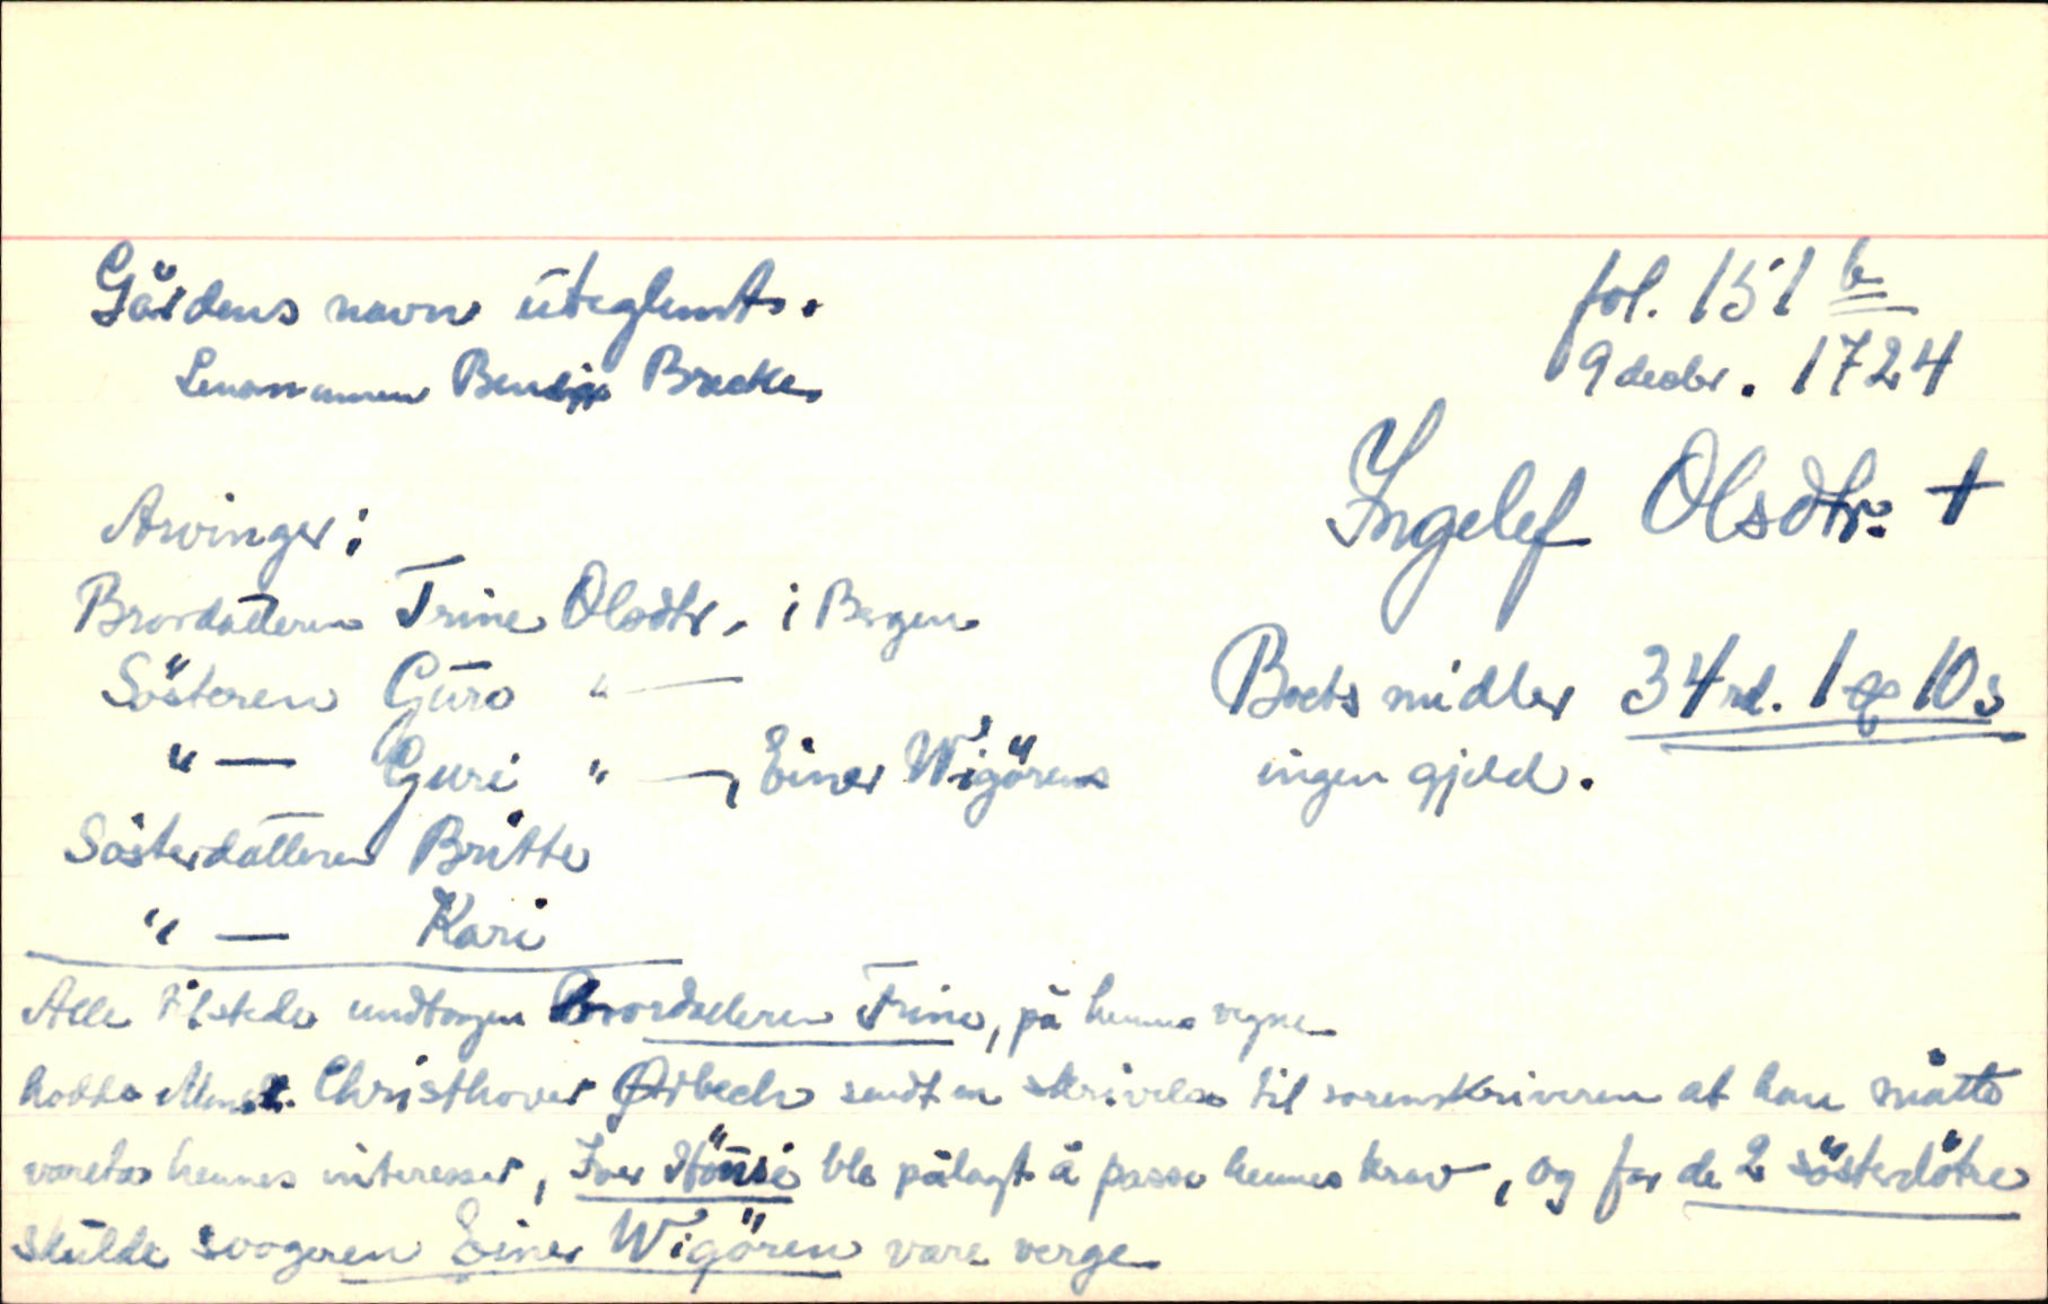 Gårdens navn uteglemt.
Lensmannen Bendix Brecke
fol. 151 b
9 decbr. 1724
Ingelef Olsdtr. +
Arvinger:
Brordatteren Trine Olsdtr, i Bergen
Søsteren Guro " —
" — Guri " —, Einer Wigøren
Søsterdatteren Britte
" — Kari
Boets midler 34 rd. 1 ort 10 s
ingen gjeld.
Alle tilstede undtagen Brordatteren Trine, på hennes vegne
hadde Mons. Christhover Ørbech sendt en skrivelse til sorenskriveren at han måtte
vareta hennes interesser, Iver Hønsi ble pålagt å passe hennes krav, og for de 2 søsterdøtre
skulde svogeren Einer Wigøren være verge